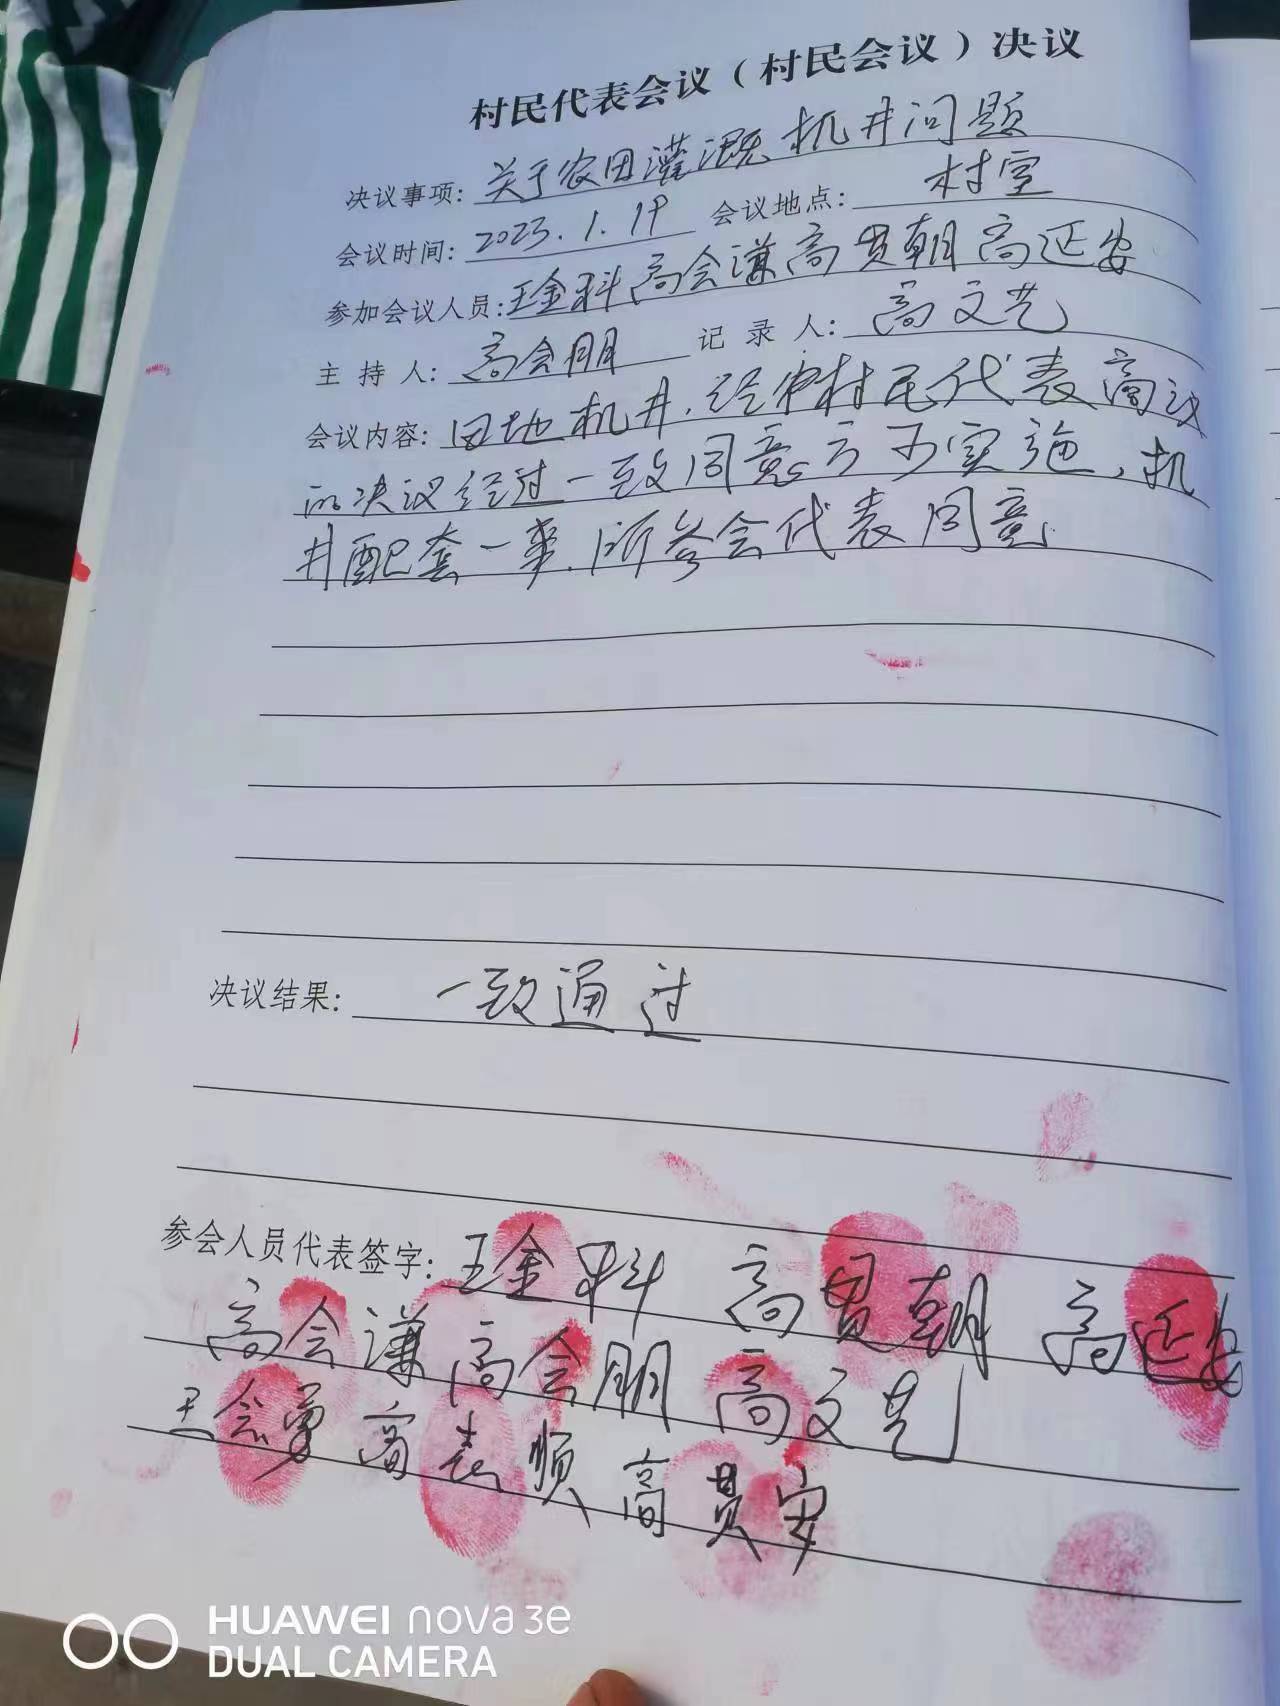 村民代表会议（村民会议）决议
决议事项: 关于农田灌溉机井问题
会议时间: 2023.1.19 会议地点: 村室
参加会议人员: 王金科高会谦高贯朝高延安
主持人: 高会朋 记录人: 高文艺
会议内容: 田地机井.经村民代表商议
的决议经过一致同意方可实施,机
井配套一事.所参会代表同意.
决议结果: 一致通过
参会人员代表签字: 王金科 高贯朝 高延安
高会谦 高会朋 高文艺
王会勇 高表顺 高贯安
HUAWEI nova 3e
DUAL CAMERA